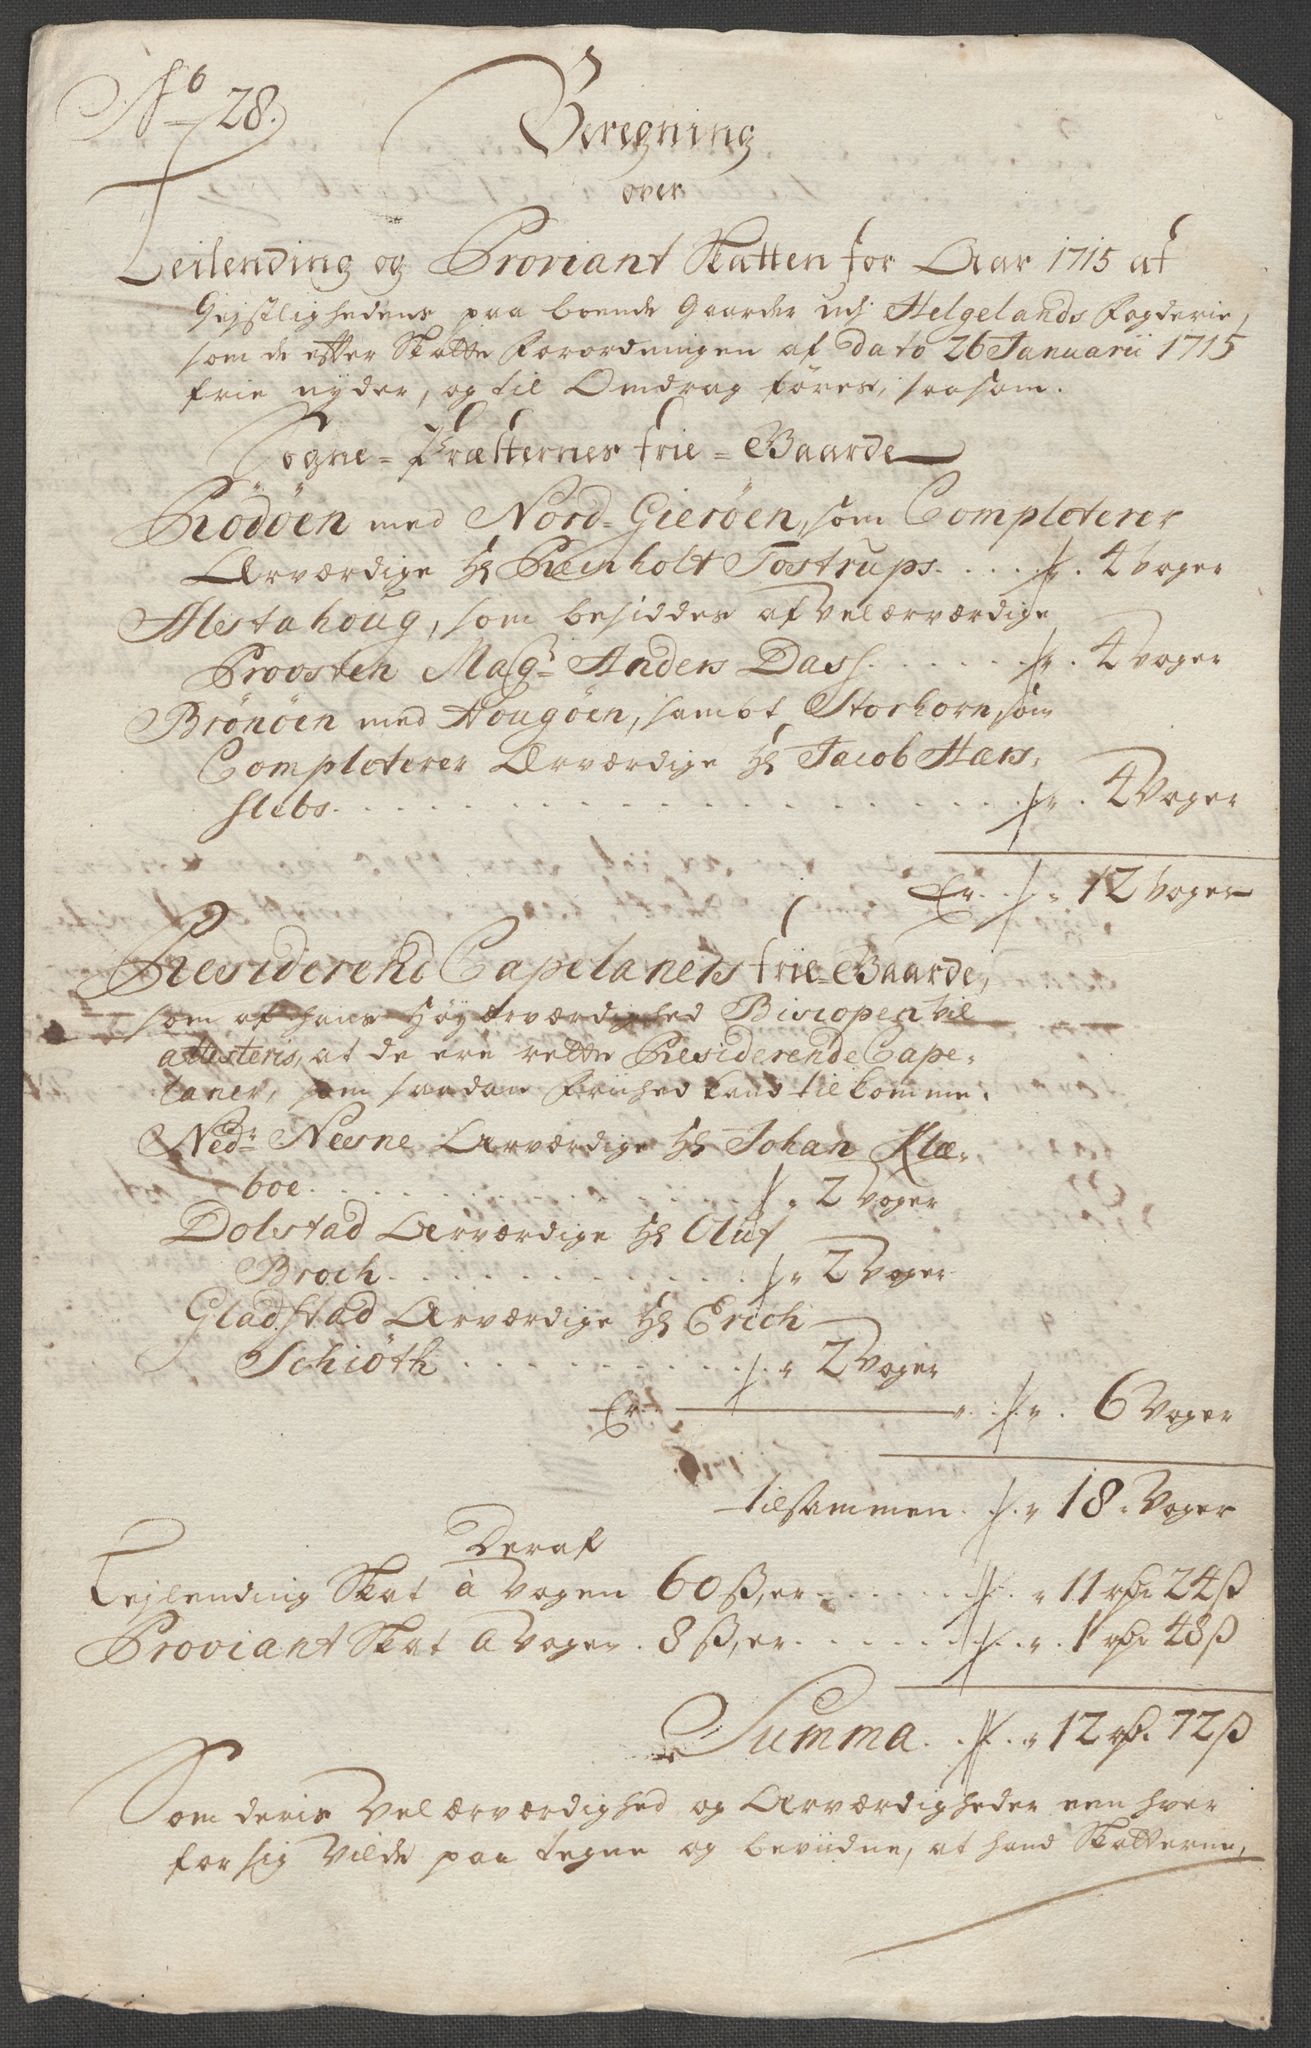 No 28.
Beregning
over
Leilending og Proviant Skatten for Aar 1715 af
Gejstlighedens paa boende Gaarder udj Helgelands Fogderie,
som de effter Skatte Forordningen af dato 26 Januarii 1715
frie nyder, og til Omdrag föres, saasom.
Sogne=Præsternes frie=Gaarde
Rödöen med Nord=Gieröen, som Completerer
Ærværdige Hr Reinholt Tostrups. . . . . 4 Voger
Alstahoug, som besiddes af Velærværdige
Provsten Magr Anders Dass. . . . . . 4 Voger
Brönöen med Hougöen, sambt Storhorn, som
Completerer Ærværdige Hr Jacob Hars,
slebs. . . . . . . . . . . . . 4 Voger
Er. . 12 Voger
Residerende Capelaners frie=Gaarde,
som af hans Höyærværdighed Biscopen vil
attesteris, at de ere rette Residerende Cape,
laner, som saadan Friehed kand tilkomme.
Nedr Neesne Ærværdige Hr Johan Klæ,
boe. . . . . . . . . . 2 Voger
Dolstad Ærværdige Hr Oluf
Broch. . . . . . . . . 2 Voger
Gladstad Ærværdige Hr Erich
Schiöth . . . . . . . . 2 Voger
Er. 6 Voger
tilsammen. . 18. Voger
Deraf
Lejlending Skat à Vogen 60 ß, er. . . . . 11 rdr 24 ß
Proviant Skat à Vogen. 8 ß, er. . . . . . 1 rdr 48 ß
Summa. . . 12 rdr 72 ß
Som deris Velærværdighed og Ærværdigheder een hver
for sig Vilde paa tegne og bevidne, at hand Skatterne,